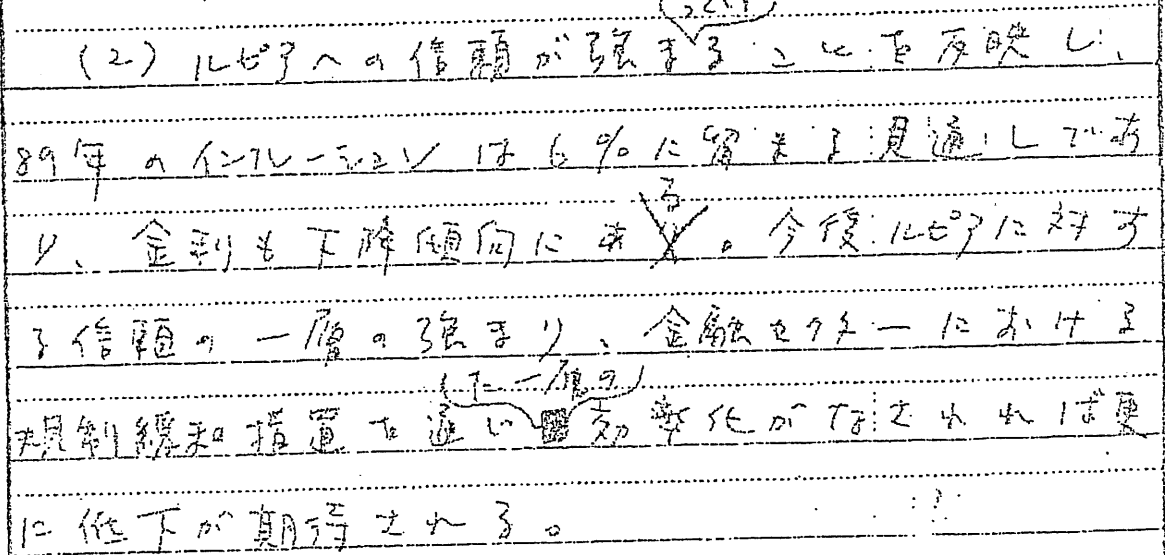 (つている)
(2) ルピアへの信頼が強まることを反映し、
89年のインフレーションは6%に留まる見通しであ
り、金利も下降傾向にある。今後ルピアに対す
る信頼の一層の強まり、金融セクターにおける
(た一層の)
規制緩和措置を通じ効率化がなされれば更
に低下が期待される。